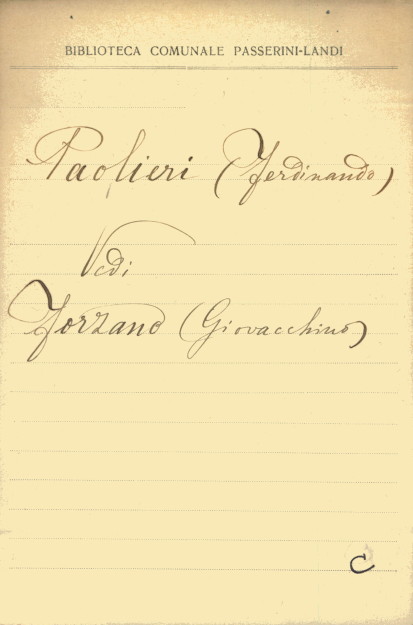 BIBLIOTECA COMUNALE PASSERINI-LANDI
Paolieri (Ferdinando)
Vedi
Forzano (Giovacchino)
C